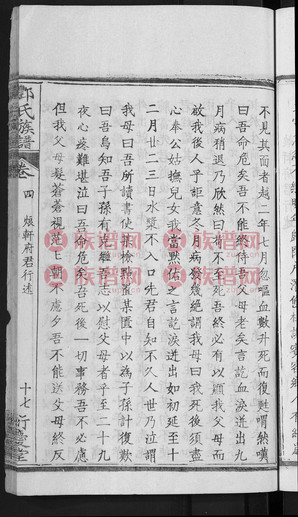 不見其面者越二年七月忽嘔血數升死而復甦喟然嘆
曰吾命危矣吾不能終侍吾父母老矣言訖血淚迸出九
月病稍退乃欣然曰吾病不死吾終必有以順我父母而
啟我後人乎詎意冬月病發幾絕謂我母曰我死後須盡
心奉公姑撫兒女我當默佑之言訖淚迸出如初延至十
二月廿二三日水漿不入口先君自知不久人世乃泣謂
我母曰吾所讀書使某檢點某匱中以為子孫計復歎
曰吾烏知吾子孫有克繼吾志以慰父母者乎至二十九
夜心疼難堪泣曰吾命危矣吾死後一切事務吾不必慮
但我父母髮蒼蒼視茫茫朝不慮夕吾不能送父母終反
氏族譜
卷
四
煥軒府君行述
十七